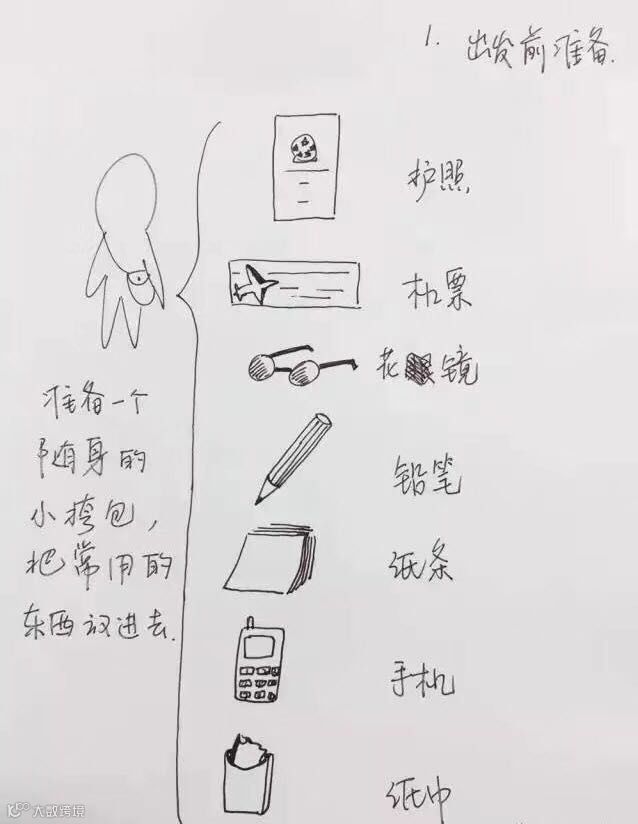 1. 出发前准备.
护照
机票
花镜
铅笔
纸条
手机
纸巾
准备一个
随身的
小挎包,
把常用的
东西放进去.
大数跨境